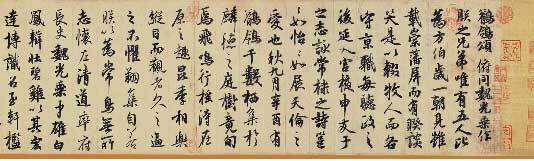 鶺鴒頌 俯同魏光乘作
朕之兄弟唯有五人比
為方伯歲一朝見雖
載崇藩屏而有睽談
笑是以輟牧人而各
守京職每聽政之
後延入宮掖申友于
之志詠常棣之詩邕
邕如怡怡如展天倫之
愛也秋九月辛酉有
鶺鴒千數栖集於
麟德之庭樹竟旬
焉飛鳴行搖得在
原之趣昆季相樂
縱目而觀者久之逼
之不懼翔集自若
朕以為常鳥無所
志懷左清道率府
長史魏光乘才雄白
鳳辯壯碧雞以其宏
達博識召至軒楹